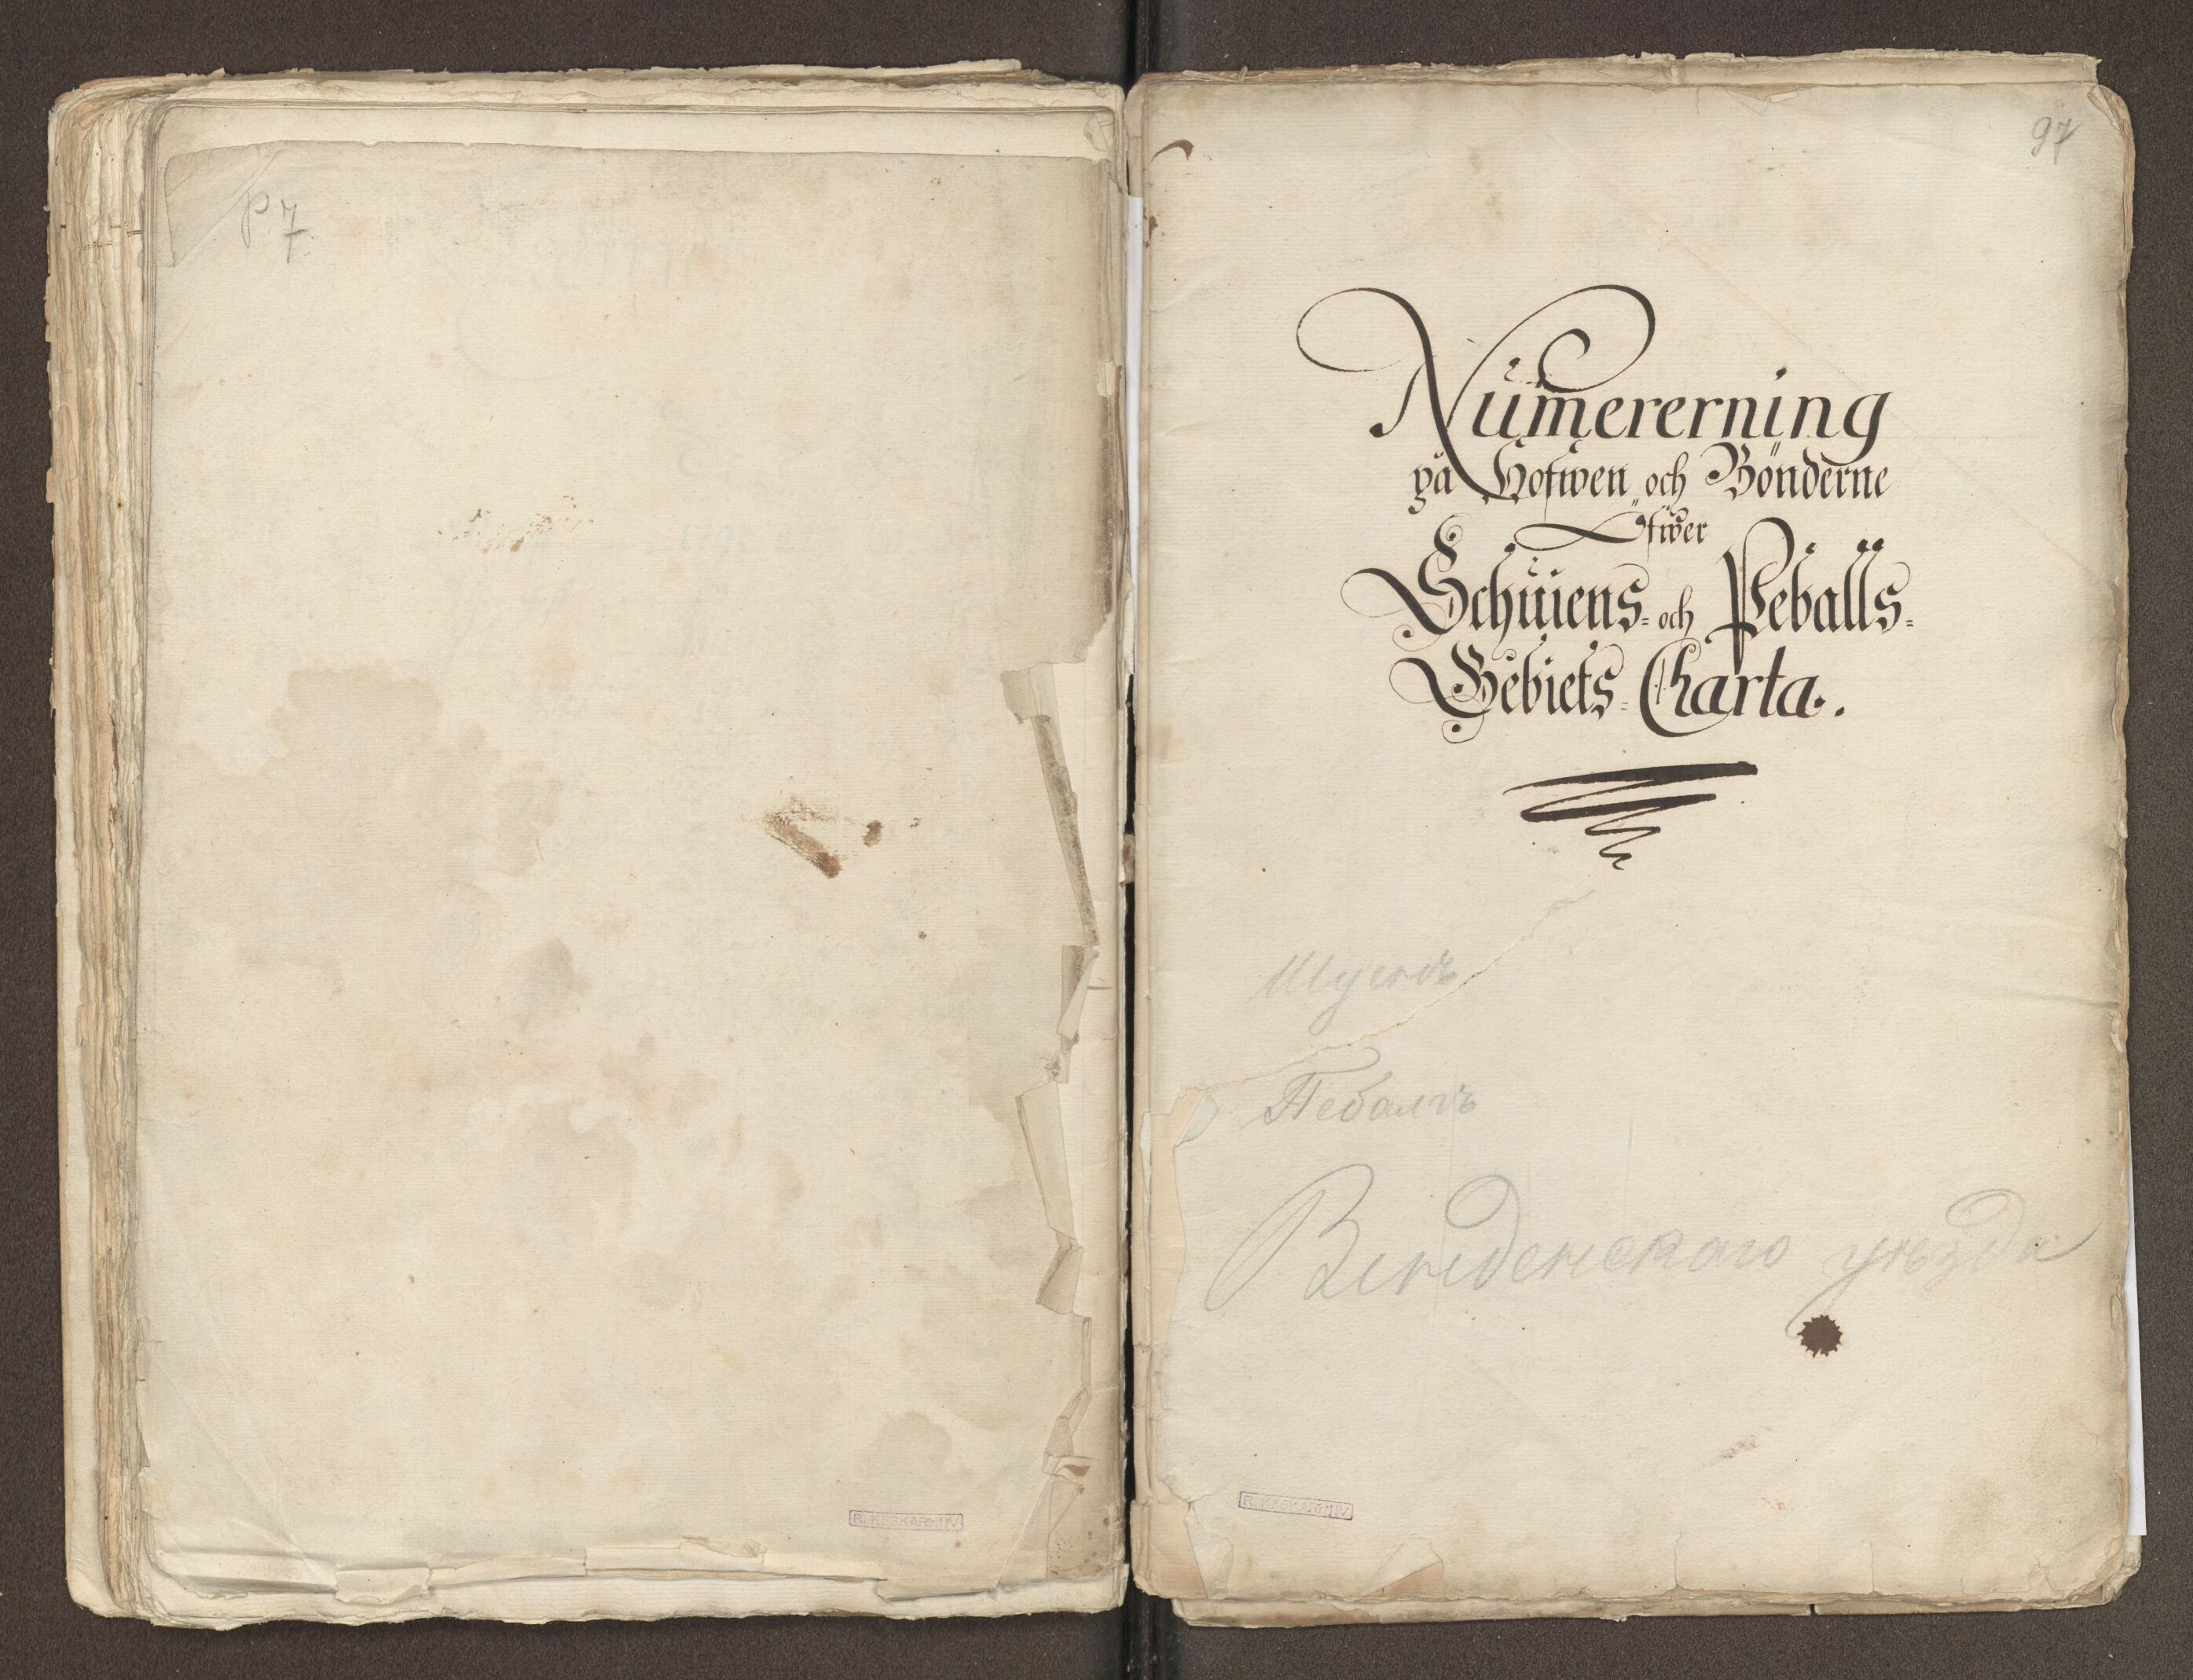 P. 7.
R. KESKARHIIV
97
Numererning
på Hofwen och Bönderne
Öfwer
Schuiens= och Peballs=
Gebiets= Charta.
Шуенъ
Пебалгъ
Венденскаго уѣзда
R. KESKARHIIV